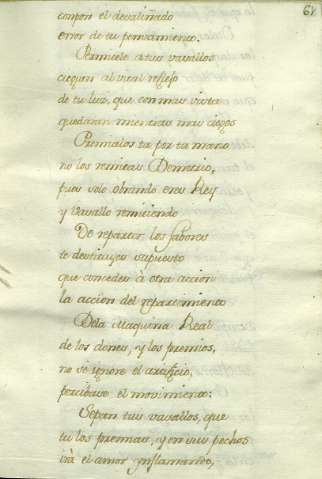 61
compon el devaliñado
error de tu pensamiento.
Permitele a tus vasallos
cieguen al vital reflejo
de tu luz, que con mas vista
quedaran mientras mas ciegos
Premialos tu por tu mano
no los remitas Demetrio,
pues solo obrando eres Rey
y vasallo remitiendo
De repartir los fabores
te destituyes supuesto
que concedes a otra accion
la accion del repartimiento
Dela Maquina Real
de los dones, y los premios,
no se ignore el artificio,
percibase el movimiento:
Sepan tus vasallos, que
tu los premias, y en sus pechos
irà el amor ynflamando,